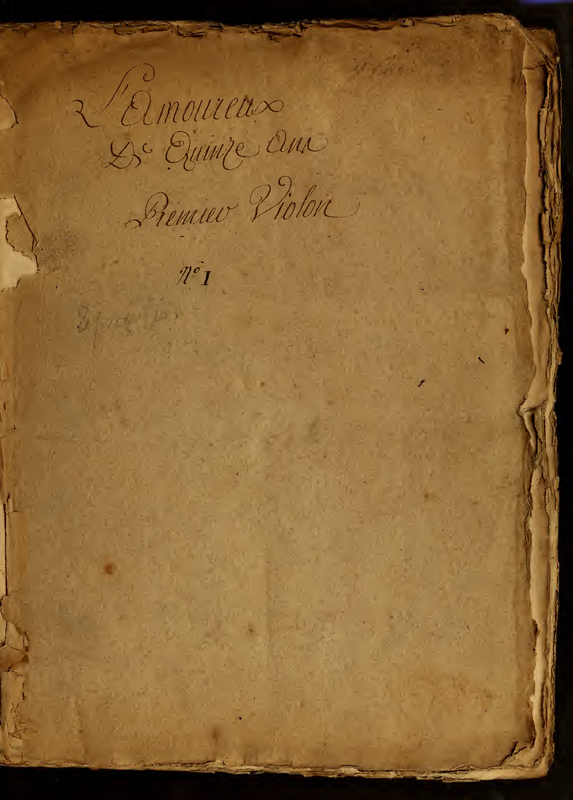 L'amoureux
De Quinze ans
Premier Violon
N.° 1